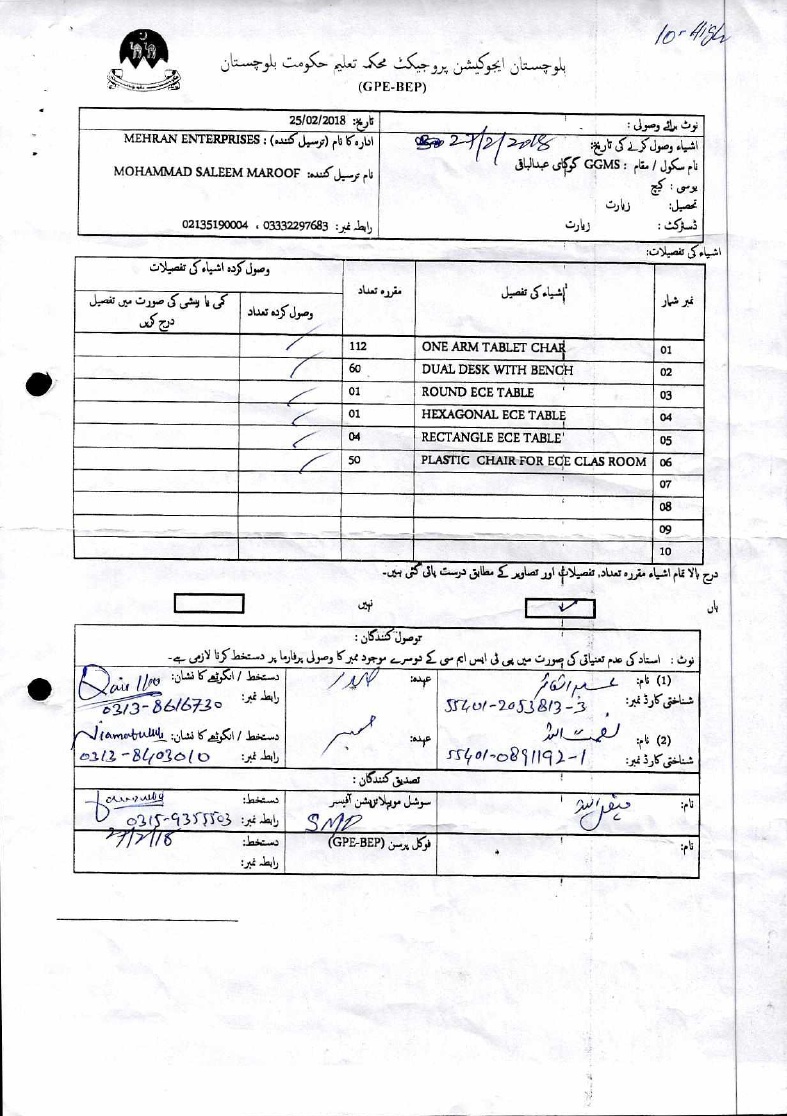 10-High
بلوچستان ایجوکیشن پروجیکٹ محکمہ تعلیم حکومت بلوچستان
(GPE-BEP)
نوٹ برائے وصولی :
تاریخ: 25/02/2018
اشیاء وصول کرنے کی تاریخ: 27/2/2018
ادارہ کا نام (ترسیل کنندہ) : MEHRAN ENTERPRISES
نام سکول / مقام : GGMS گوگائی عبدالباقی
نام ترسیل کنندہ: MOHAMMAD SALEEM MAROOF
یوسی : کیچ
تحصیل: زیارت
ڈسٹرکٹ : زیارت
رابطہ نمبر: 03332297683 ، 02135190004
اشیاء کی تفصیلات:
نمبر شمار اشیاء کی تفصیل مقررہ تعداد وصول کردہ اشیاء کی تفصیلات
وصول کردہ تعداد کمی یا بیشی کی صورت میں تفصیل درج کریں
01 ONE ARM TABLET CHAR 112
02 DUAL DESK WITH BENCH 60
03 ROUND ECE TABLE 01
04 HEXAGONAL ECE TABLE 01
05 RECTANGLE ECE TABLE 04
06 PLASTIC CHAIR FOR ECE CLAS ROOM 50
07
08
09
10
درج بالا تمام اشیاء مقررہ تعداد, تفصیلات اور تصاویر کے مطابق درست پائی گئی ہیں۔
ہاں ✓ نہیں
توصول کنندگان :
نوٹ : استاد کی عدم تعیناتی کی صورت میں پی ٹی ایس ایم سی کے دوسرے موجود ممبر کا وصولی پرفارما پر دستخط کرنا لازمی ہے۔
(1) نام: عہدہ: صدر دستخط / انگوٹھے کا نشان:
شناختی کارڈ نمبر: 55401-2053813-3 رابطہ نمبر: 0313-8616730
(2) نام: نعمت اللہ عہدہ: ممبر دستخط / انگوٹھے کا نشان: Niamatullah
شناختی کارڈ نمبر: 55401-0891192-1 رابطہ نمبر: 0313-8403010
تصدیق کنندگان :
نام: سوشل موبیلائزیشن آفیسر دستخط:
SMO رابطہ نمبر: 0315-9355503
نام: فوکل پرسن (GPE-BEP) دستخط: 27/2/18
رابطہ نمبر: